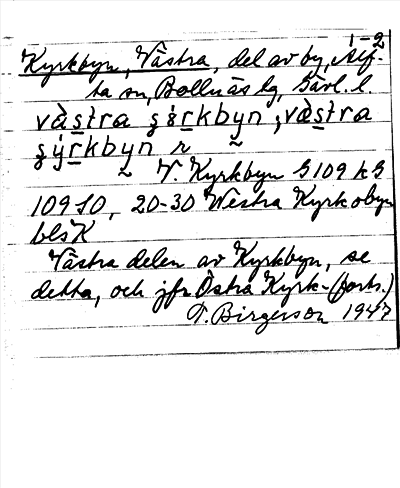 1-2
Kyrkbyn, Västra, del av by, Alf-
ta sn, Bollnäs lg, Gävl. l.
västra kyrkbyn, västra
kyrkbyn
V. Kyrkbyn G109 k G
109 SO, 20-30 Westra Kyrkobyn
bls K
Västra delen av Kyrkbyn, se
detta, och jfr Östra Kyrk- (forts.)
T. Birgerson 1947